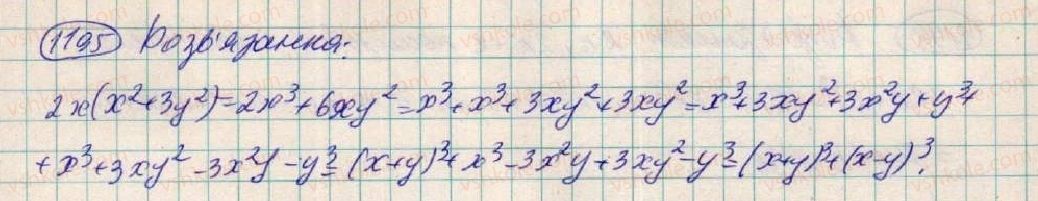 1195 Розв'язання:
2x(x²+3y²)=2x³+6xy²=x³+x³+3xy²+3xy²=x³+3xy²+3x²y+y³+
+x³+3xy²-3x²y-y³=(x+y)³+x³-3x²y+3xy²-y³=(x+y)³+(x-y)³.